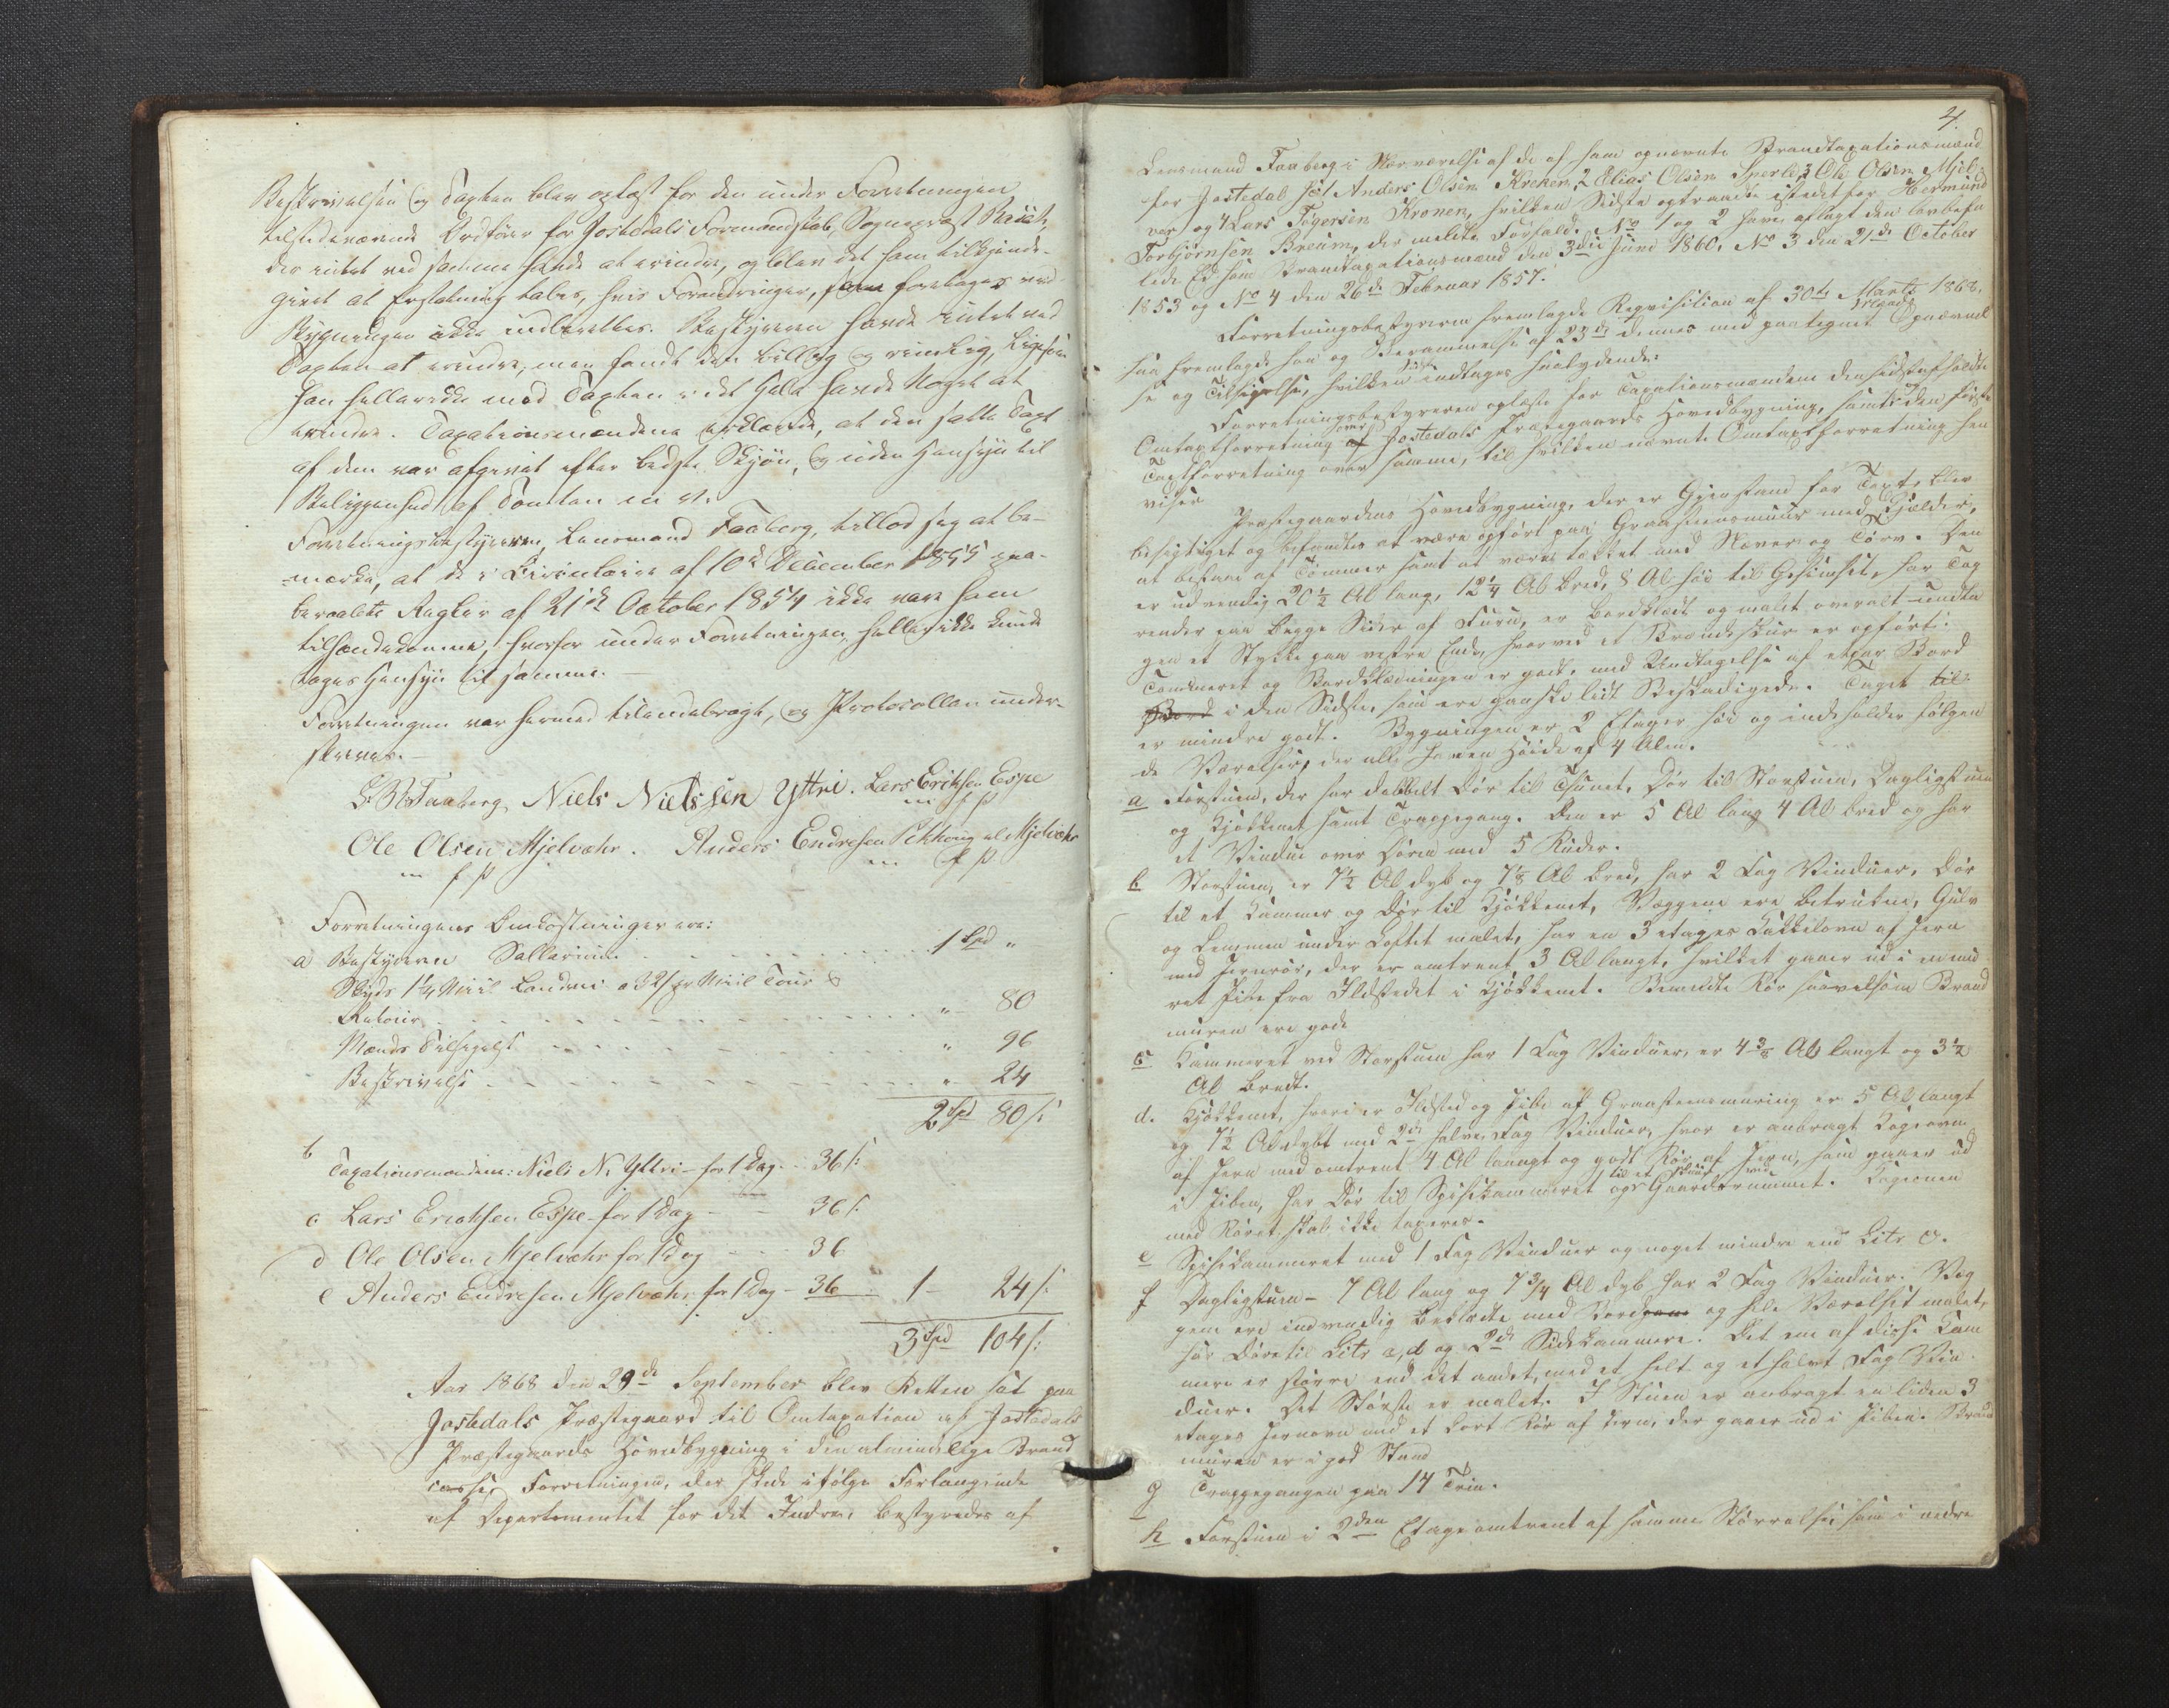 Beskrivelsen og Taxten blev oplæst for den under Forretningen
tilstedeværende Ordfører for Jostedals Formandskab, Sogneprest
der intet ved samme havde at erindre, og blev det ham tilkjende-
givet at Erstatning tabes, hvis Forandringer, som foretages ved
Bygningen ikke indberettes. Bestyreren havde intet ved
Taxten at erindre, men fandt den billig og rimelig, ligesom
han heller ikke mod Taxten i det Hele havde Noget at
erindre. Taxationsmændene erklærede, at den satte Taxt
af dem var afgivet efter bedste Skjøn, og uden Hensyn til
Beliggenhed af Tomten m. v.
Forretningsbestyreren, Lensmand Faaberg, tillod sig at be-
mærke, at de i Circulaire af 10de December 1855 paa-
beraabte Regler af 21de October 1854 ikke vare ham
tilhændekomne, hvorfor under Forretningen heller ikke kunde
tages Hensyn til samme.
Forretningen var hermed tilendebragt, og Protocollen under-
skreves.
Faaberg Niels Nielssen Yttri. Lars Eriksen Espe
m f P
Ole Olsen Mjelvæhr. Anders Endresen Mjelvæhr
m f P m f P
Forretningens Omkostninger ere:
a Bestyreren Sallarium 1 Spd "
Skyds 1 1/4 Miil Landvei a 32 s pr Miil Tour &
Retour " 80
Mænds Tilsigelse " 96
Beskrivelse " 24
2 Spd 80 s:
b Taxationsmændene: Niels N. Yttri for 1 Dag 36 s:
c Lars Eriksen Espe for 1 Dag - 36 s:
d Ole Olsen Mjelvæhr for 1 Dag - 36
e Anders Endresen Mjelvæhr for 1 Dag - 36 1 - 24 s:
3 Spd 104 s:
Aar 1868 den 29de September blev Retten sat paa
Jostedals Præstegaard til Omtaxation af Jostedals
Præstegaards Hovedbygning i den almindelige Brand
casse, Forretningen, der skede ifølge Forlangende
af Departementet for det Indre, bestyredes af
4.
Lensmand Faaberg i Nærværelse af de af ham opnævnte Brandtaxationsmænd
for Jostedal No 1 Anders Olsen Kreken, 2 Elias Olsen Sperle, 3 Ole Olsen Mjel-
vær og 4 Lars Tøgersen Kronen, hvilken Sidste optraadte istedetfor Hermund
Torbjørnsen Breum, der meldte Forfald. No 1 og 2 have aflagt den lovbefa
lede Ed som Brandtaxationsmænd den 3die Juni 1860, No 3 den 21de October
1853 og No 4 den 26de Februar 1857.
Forretningsbestyreren fremlagde Reqvisition af 30te Marts 1868,
saa fremlagde han og Berammelse af 23de dennes med paategnet Opnævnel
se og Tilsigelse, hvilken indtages saalydende:
Forretningsbestyreren oplæste for Taxationsmændene den sidst afholdte
Omtaxtforretning over Jostedals Præstegaards Hovedbygning, samt den første
Taxtforretning over samme, til hvilken nævnte Omtaxtforretning hen
viser.
Præstegaardens Hovedbygning, der er Gjenstand for Taxt, blev
besigtiget og befandtes at være opført paa Graasteensmuur med Kjelder,
at bestaae af Tømmer samt at være tækket med Næver og Torv. Den
er udvendig 20 1/2 Al lang, 12 1/4 Al bred, 8 Al høi til Gesimset, har Tag
render paa begge Sider af Furu, er bordklædt og malet overalt undta
gen et Stykke paa vestre Ende, hvorved et Brændeskuur er opført.
Tømmeret og Bordklædningen er godt, med Undtagelse af etpar Bord
i den Sidste, som ere ganske lidt Beskadigede. Taget
er mindre godt. Bygningen er 2 Etager høi og indeholder følgen
de Værelser, der alle have en Høide af 4 Alen.
a Forstuen, der har dobbelt Dør til Thunet, Dør til Storstuen, Dagligstuen
og Kjøkkenet samt Trappegang. Den er 5 Al lang 4 Al bred og har
et Vindue over Døren med 5 Ruder.
b Storstuen er 7 1/2 Al dyb og 7 1/8 Al bred, har 2 Fag Vinduer, Dør
til et Kammer og Dør til Kjøkkenet, Væggene ere betrukne, Gulv
og Lemmen under Loftet malet, har en 3 etages Kakkelovn af Jern
med Jernrør, der er omtrent 3 Al langt, hvilket gaaer ud i en mu
ret Pibe fra Ildstedet i Kjøkkenet. Bemeldte Rør saavelsom Brand
muren ere gode
c Kammeret ved Storstuen har 1 Fag Vinduer, er 4 3/8 Al langt og 3 1/2
Al bredt.
d. Kjøkkenet, hvori er Ildsted og Pibe af Graasteensmuring er 5 Al langt
og 7 1/2 Al dybt med 2de halve Fag Vinduer, hvor er anbragt Kogeovn
af Jern med omtrent 4 Al langt og godt Rør af Jern, som gaaer ud
i Piben, har Dør til Spisekammeret og til et Skuur ved Gaardsrummet. Kogeovnen
med Røret skal ikke taxeres.
e Spisekammeret med 1 Fag Vinduer og noget mindre end Litr c.
f Dagligstuen - 7 Al lang og 7 3/4 Al dyb har 2 Fag Vinduer. Væg
gene ere indvendig beklædte med Bord og hele Værelset malet,
har Døre til Litr a, d og 2de Sidekammere. Det ene af disse Kam
mere er større end det andet, med et helt og et halvt Fag Vin
duer. Det Største er malet. I Stuen er anbragt en liden 3
etages Jernovn med et kort Rør af Jern, der gaaer ud i Piben. Brand
muren er i god Stand
g Trappegangen paa 14 Trin.
h Forstuen i 2den Etage omtrent af samme Størrelse som i nedre